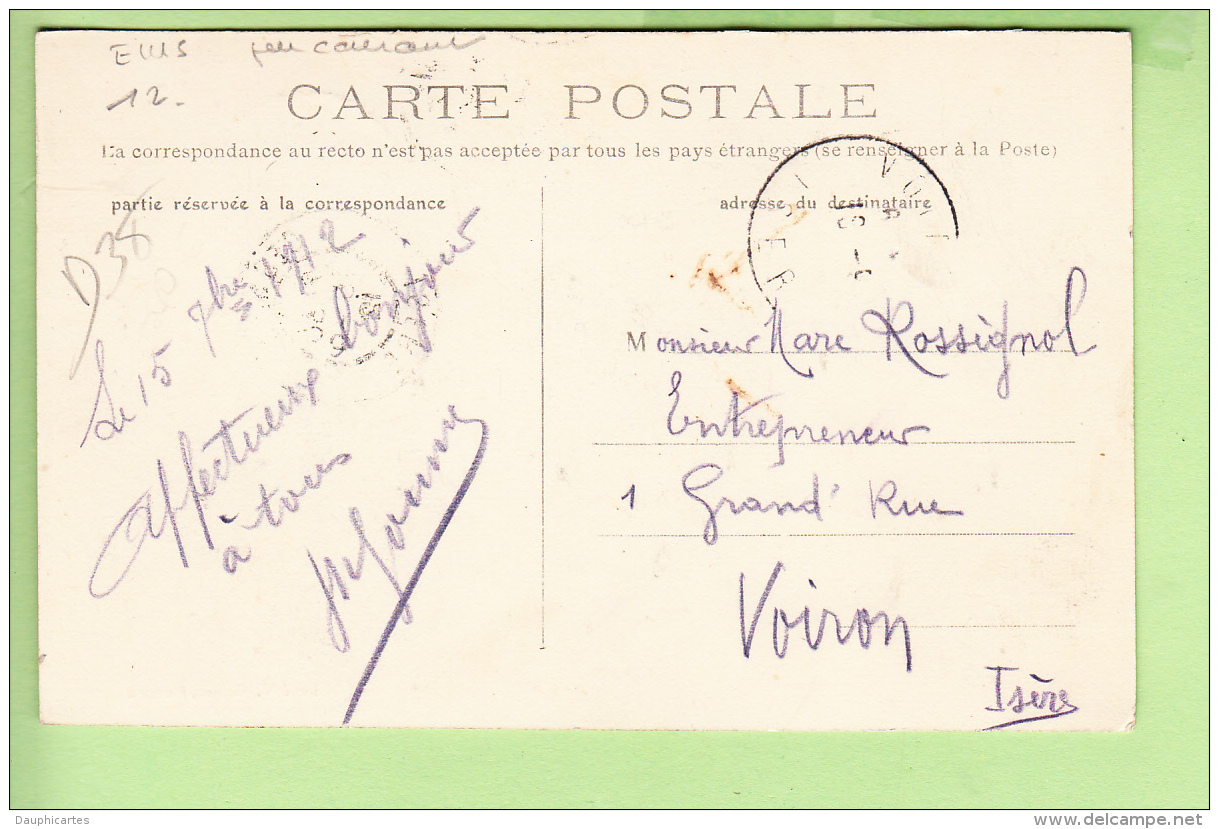 EMS peu courant
12.
CARTE POSTALE
La correspondance au recto n'est pas acceptée par tous les pays étrangers (se renseigner à la Poste)
partie réservée à la correspondance
adresse du destinataire
D38
Le 15 7bre 1912
Affectueux bonjour
à tous
Monsieur Marc Rossignol
Entrepreneur
1 Grand' Rue
Voiron
Isère
Dauphicartes
delcampe.net